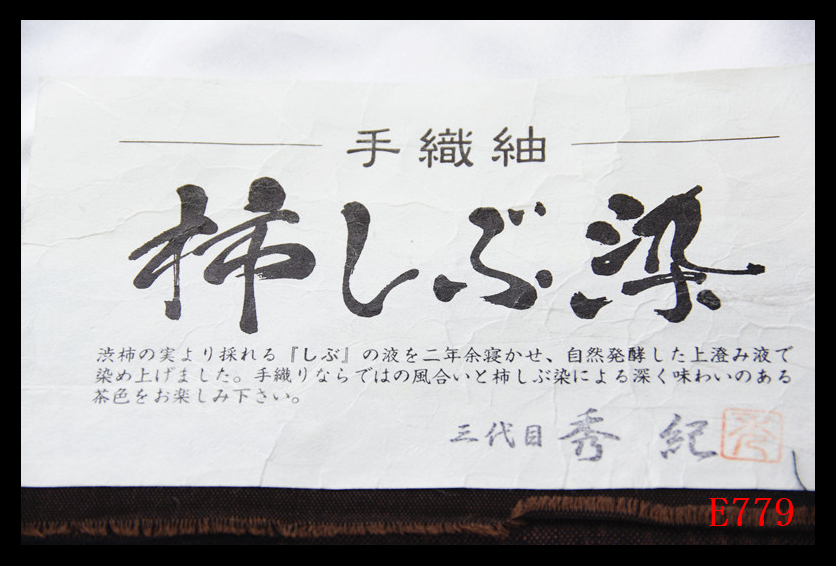 手織紬
柿しぶ染
渋柿の実より採れる『しぶ』の液を二年余寝かせ、自然発酵した上澄み液で
染め上げました。手織りならではの風合いと柿しぶ染による深く味わいのある
茶色をお楽しみ下さい。
三代目 秀紀
秀
E779